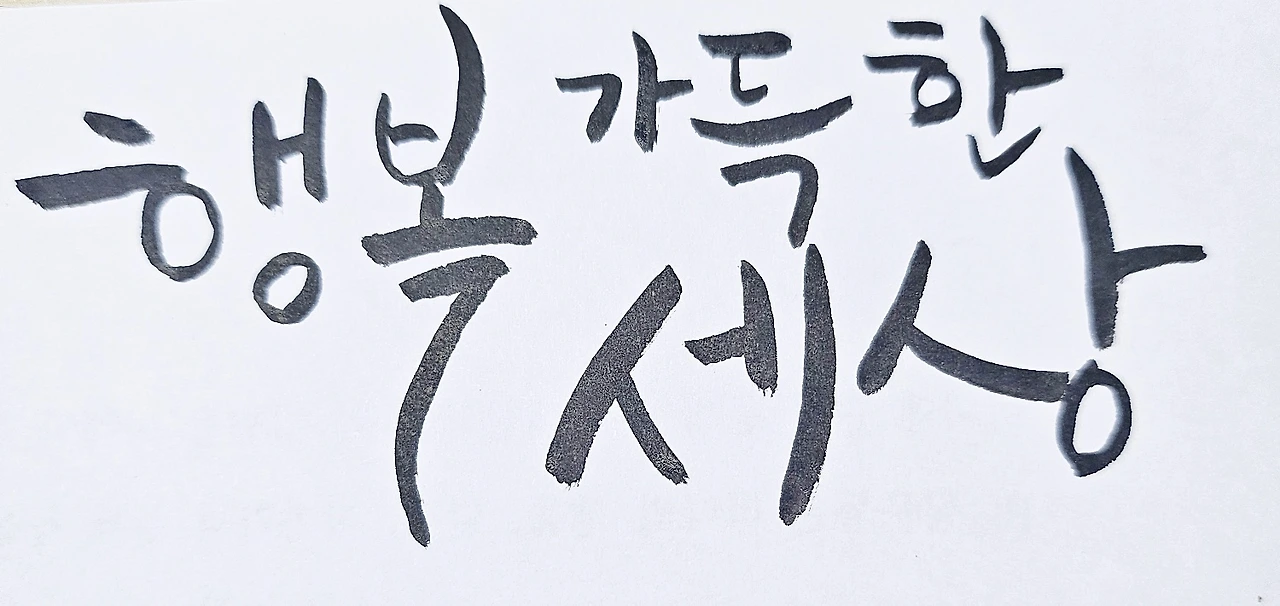 행복 가득한
세상